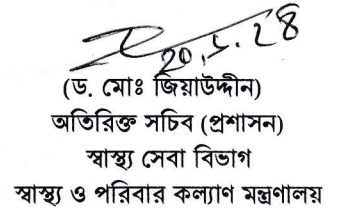 20.5.28
(ড. মোঃ জিয়াউদ্দীন)
অতিরিক্ত সচিব (প্রশাসন)
স্বাস্থ্য সেবা বিভাগ
স্বাস্থ্য ও পরিবার কল্যাণ মন্ত্রণালয়